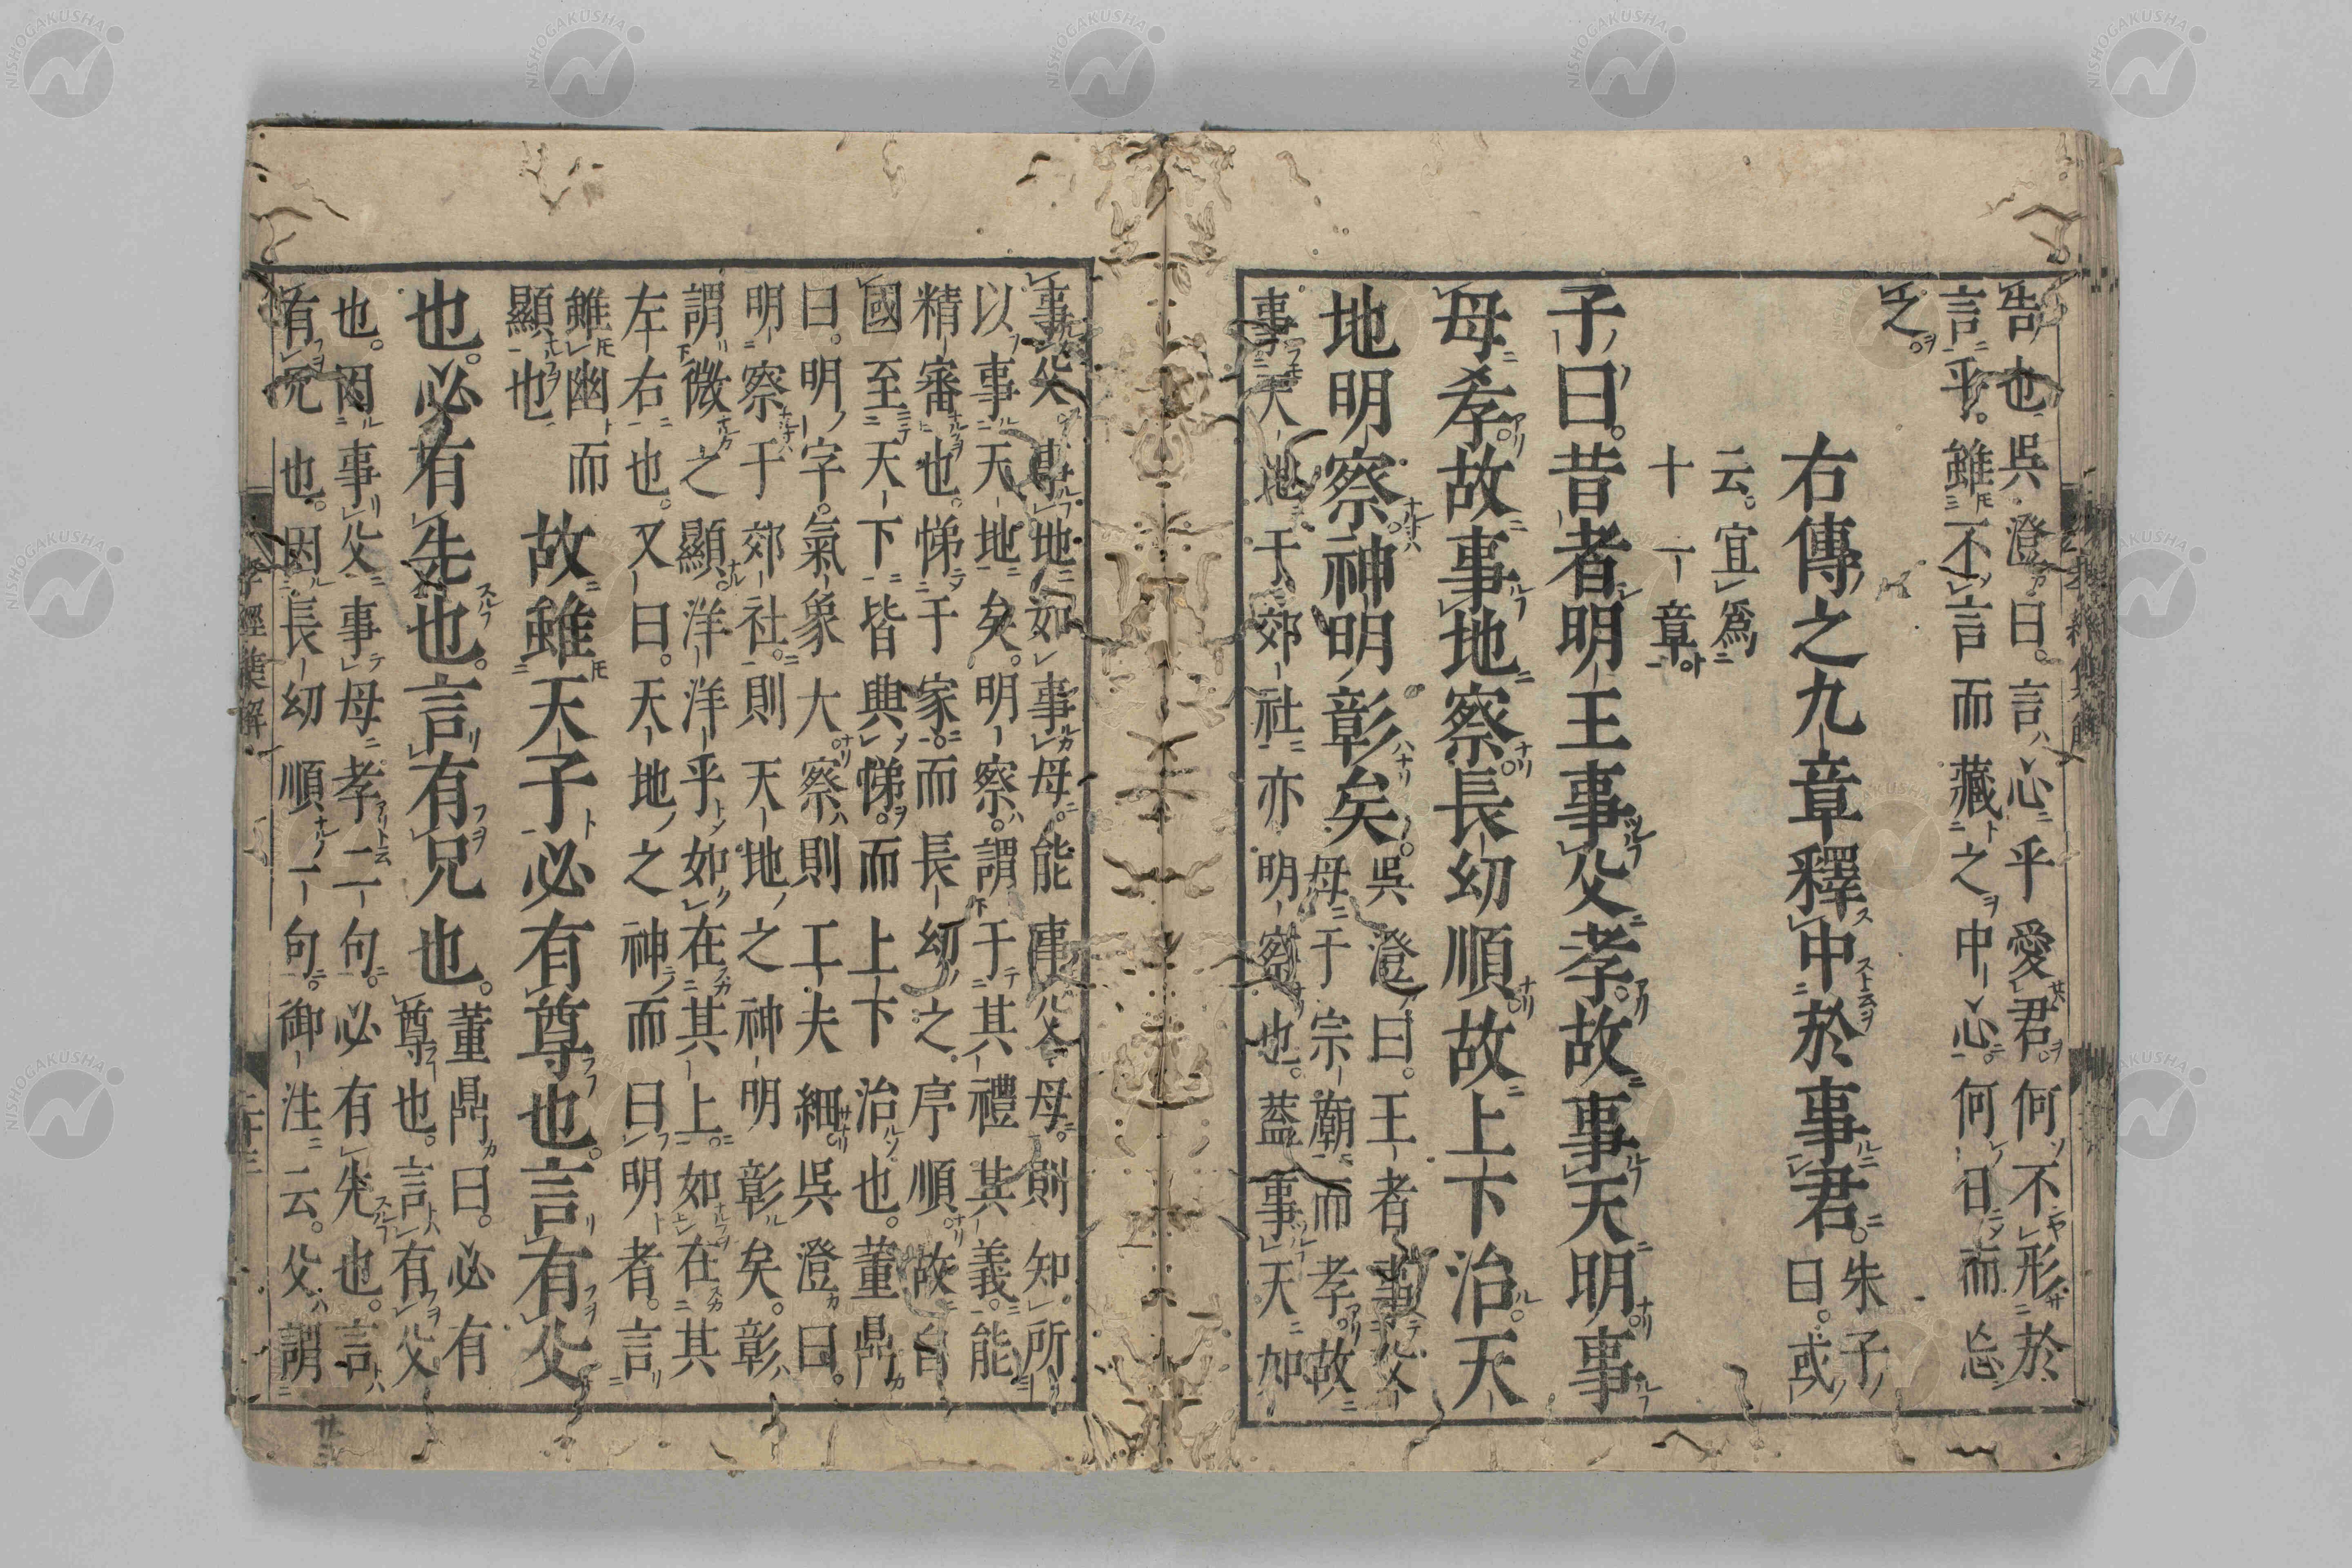 告也吳澄曰。言心乎愛君何不形於
言乎。雖不言而藏之中心。何日而忘
之。
右傳之九章釋中於事君。
朱子
曰。或
云。宜爲
十一章
子曰。昔者明王事父孝。故事天明。事
母孝。故事地察。長幼順。故上下治。天
地明察。神明彰矣。
吳澄曰。王者事父
母于宗廟而孝。故
事天地于郊社亦明察也。蓋事天如
事父。事地如事母。能事父母。則知所
以事天地矣。明察。謂于其禮其義。能
精審也。悌于家。而長幼之序順。故自
國至天下皆興悌。而上下治也。董鼎
曰。明字。氣象大。察則工夫細。吳澄曰。
明察于郊社。則天地之神明彰矣。彰
謂微之顯。洋洋乎如在其上。如在其
左右也。又曰。天地之神而曰明者。言
雖幽而
顯也
故雖天子必有尊也。言有父
也。必有先也。言有兄也。
董鼎曰。必有
尊也。言有父
也。因事父事母孝二句。必有先也。言
有兄也。因長幼順一句。御注云。父謂
孝經集解